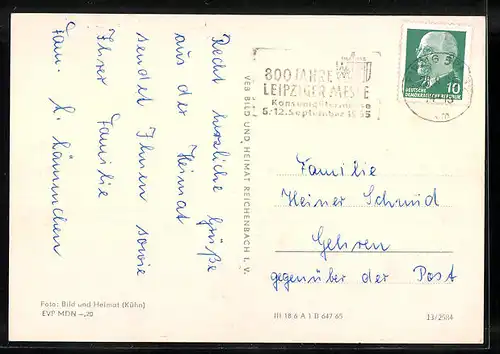 Recht herzliche Grüße
aus der Heimat
sendet Ihnen sowie
Ihrer Familie
Fam. H. Lämmchen
Foto: Bild und Heimat (Kühn)
EVP MDN -,20
VEB BILD UND HEIMAT REICHENBACH I. V.
800 JAHRE
LEIPZIGER MESSE
Konsumgütermesse
5.-12. September 1965
DEUTSCHE
DEMOKRATISCHE REPUBLIK
10
Familie
Heiner Schmid
Gehren
gegenüber der Post
III 18 6 A 1 B 647 65
13/2584